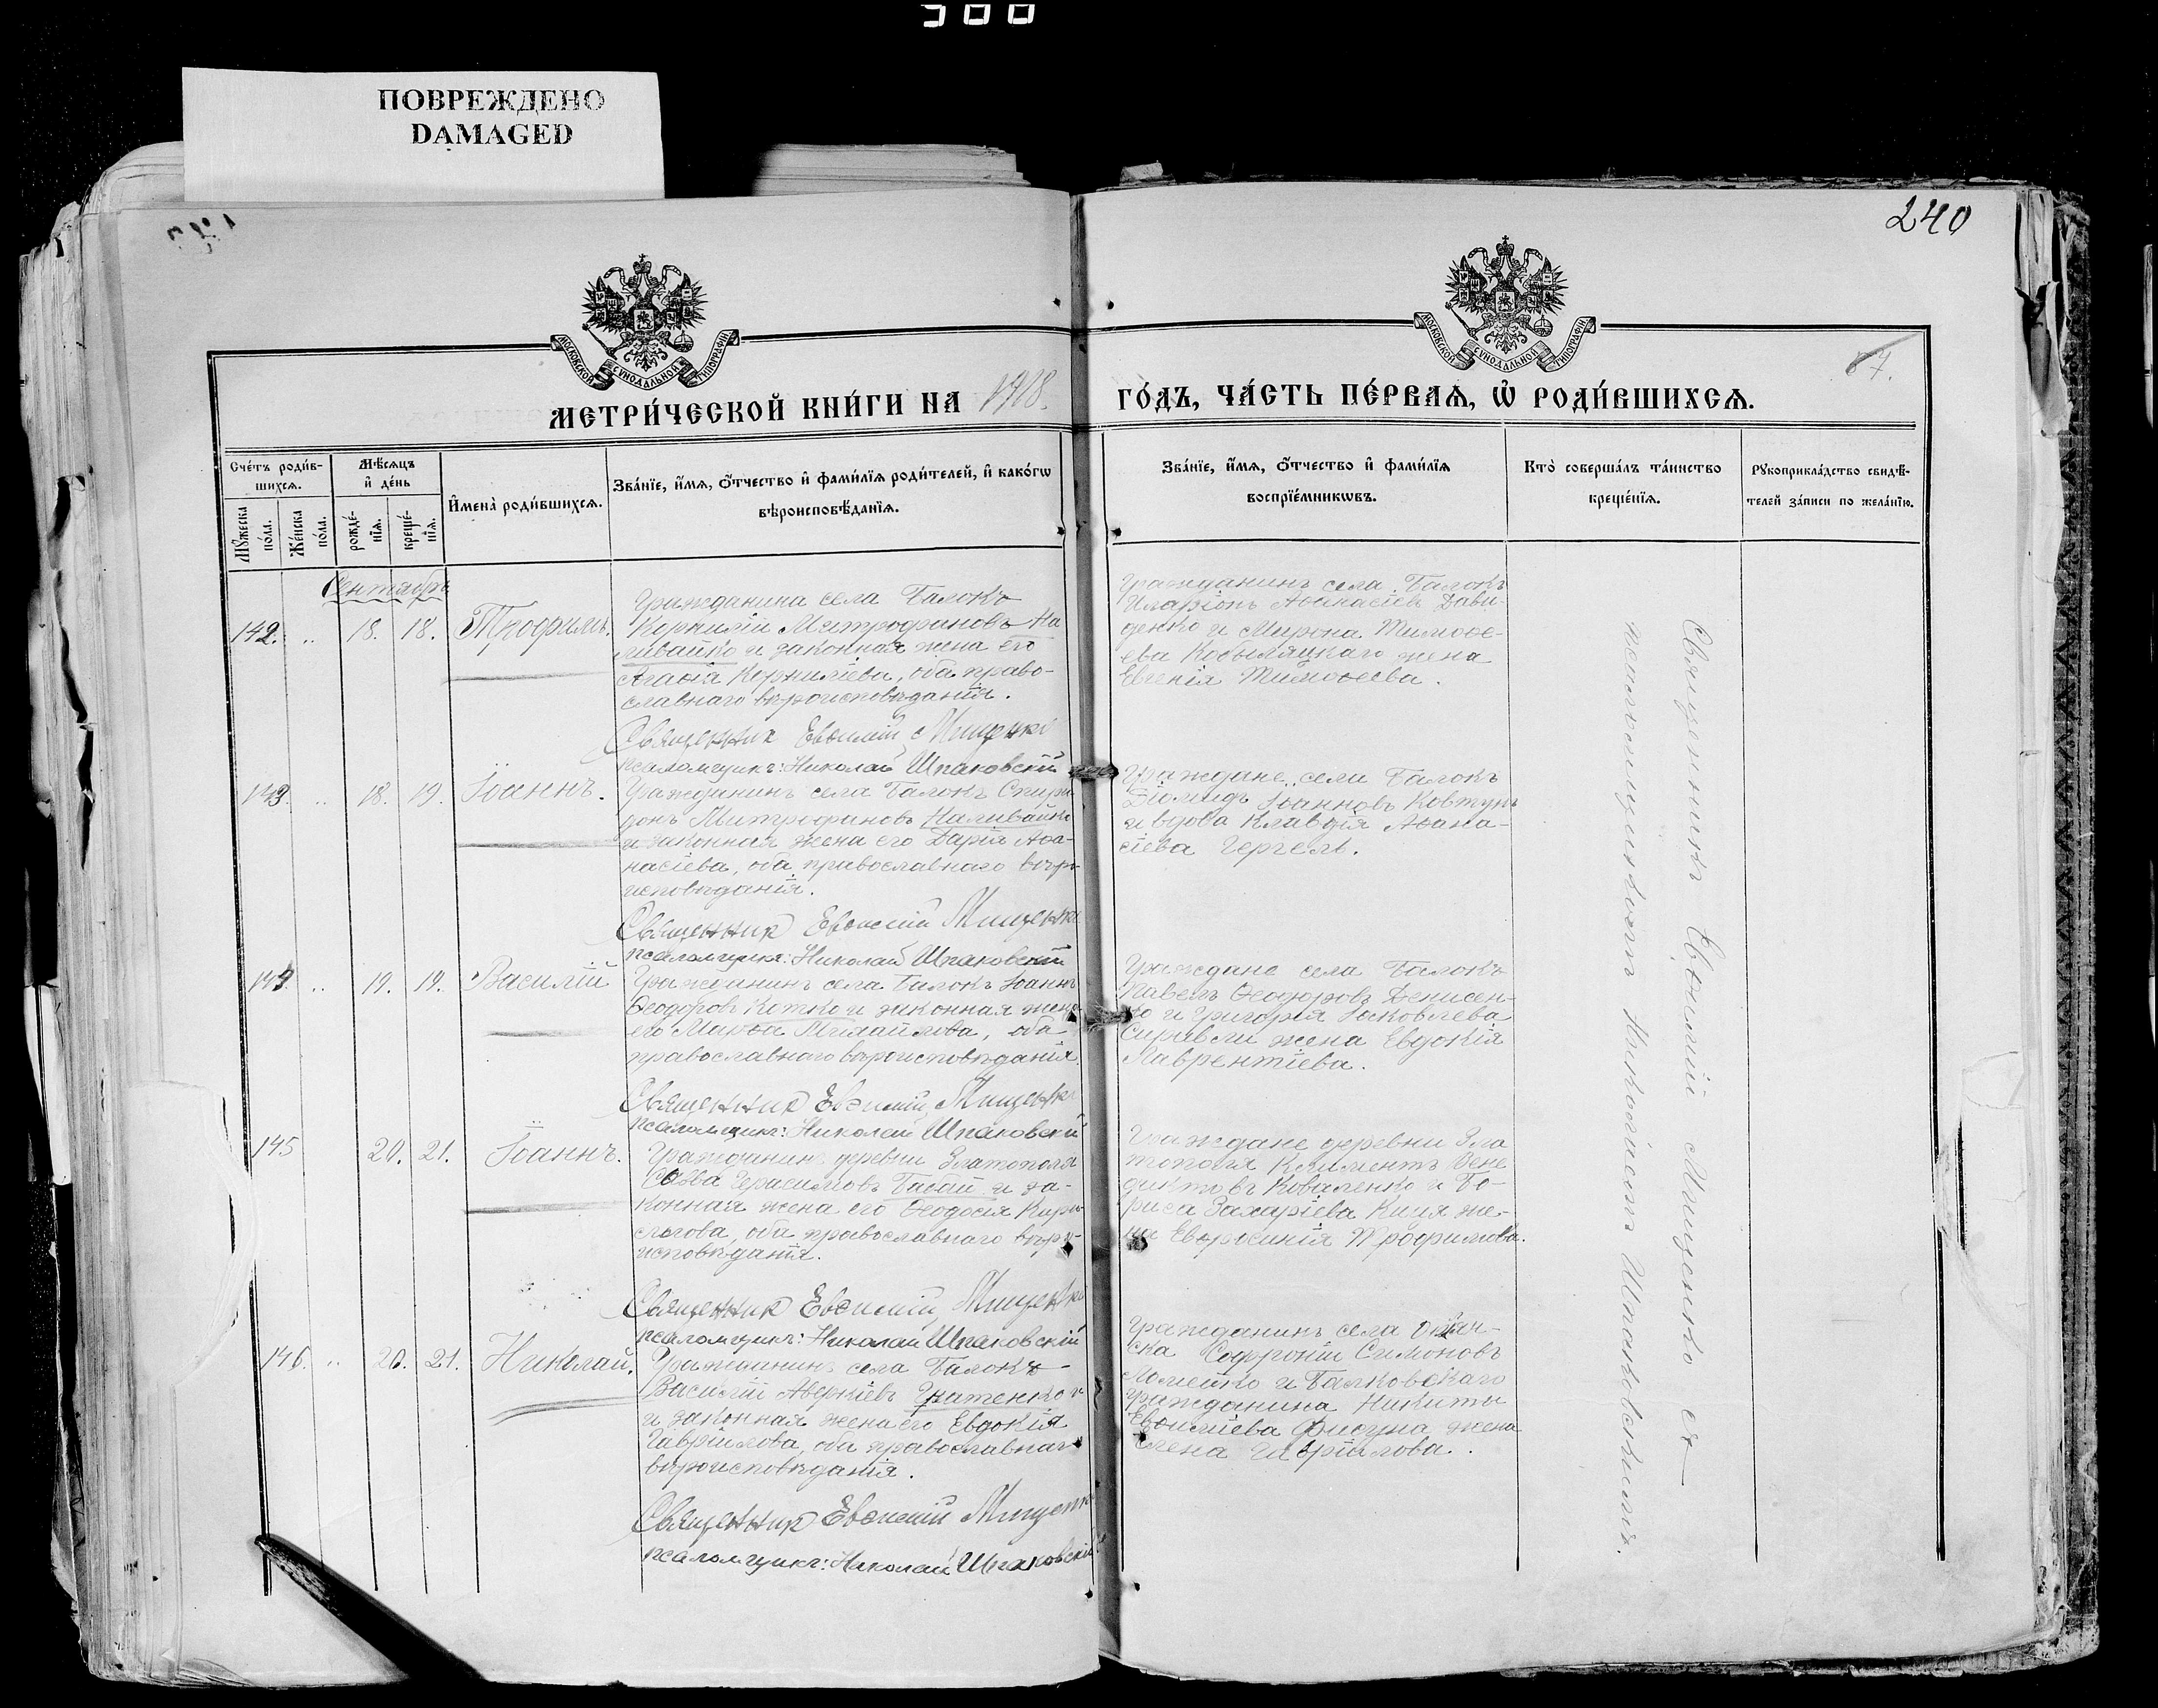 ПОВРЕЖДЕНО
DAMAGED
240
МОСКОВСКОЙ СѴНОДАЛЬНОЙ ТИПОГРАФІИ
МОСКОВСКОЙ СѴНОДАЛЬНОЙ ТИПОГРАФІИ
МЕТРИ́ЧЕСКОЙ КНИ́ГИ НА 1918.
ГО́ДЪ, ЧА́СТЬ ПЕ́РВАѦ, Ѡ҆ РОДИ́ВШИХСѦ.
Сче́тъ роди́в-
шихсѧ.
Мꙋжеска по́ла.
Же́нска по́ла.
Мѣ́сѧцъ
и҆ де́нь
рожде́-
нїѧ.
креще́-
нїѧ.
И҆мена̀ роди́вшихсѧ.
Зва́нїе, и҆́мѧ, ѻ҆́тчество и҆ фами́лїѧ роди́телей, и҆ како́гѡ
вѣроисповѣ́данїѧ.
Зва́нїе, и҆́мѧ, ѻ҆́тчество и҆ фами́лїѧ
воспрїе́мникѡвъ.
Кто̀ соверша́лъ та́инство
креще́нїѧ.
Рꙋкоприкла́дство свидѣ́-
телей за́писи по жела́нїю.
Сентябрь
142. " 18. 18. Трофимъ.
Гражданина села Балокъ
Корнилій Митрофановъ На
ливайко и законная жена его
Агафія Корниліева, оба право-
славнаго вѣроисповѣданія.
Священник Евѳимій Мищенко
псаломщикъ: Николай Шпаковскій
Гражданинъ села Балокъ
Иларіонъ Аѳанасіевъ Дави-
денко и Мирона Тимоѳе-
ева Кобыляцкаго жена
Евгенія Тимоѳеева.
143. " 18. 19. Іоаннъ.
Гражданинъ села Балокъ Спири
донъ Митрофановъ Наливайко
и законная жена его Дарія Аѳа-
насіева, оба православнаго вѣро-
исповѣданія.
Священник Евѳимій Мищенко
псаломщикъ: Николай Шпаковскій
Граждане села Балокъ
Діомидъ Іоанновъ Ковтунъ
и вдова Клавдія Аѳана-
сіева Гергель.
144. " 19. 19. Василій
Гражданинъ села Балокъ Іоаннъ
Ѳеодоровъ Котко и законная жена
его Марѳа Михайлова, оба
православнаго вѣроисповѣданія.
Священник Евѳимій Мищенко
псаломщикъ: Николай Шпаковскій
Граждане села Балокъ
Павелъ Ѳеодоровъ Денисен-
ко и Григорія Іаковлева
жена Евдокія
Лаврентіева.
145 20. 21. Іоаннъ.
Гражданинъ деревни Златополя
Савва Герасимовъ Бабай и за-
конная жена его Ѳеодосія Кири-
лова, оба православнаго вѣро-
исповѣданія.
Священник Евѳимій Мищенко
псаломщикъ: Николай Шпаковскій
Граждане деревни Зла
тополя Климентъ Вене
диктовъ Коваленко и Бо-
риса Захаріева Киця же-
на Евфросинія Трофимова.
146. " 20. 21. Николай.
Гражданинъ села Балокъ
Василій Аверкіевъ и
и законная жена его Евдокія
Гавріилова, оба православнаго
вѣроисповѣданія.
Священник Евѳимій Мищенко
псаломщикъ: Николай Шпаковскій
Гражданинъ села
Софроній Симоновъ
Ломейко и Балковскаго
гражданина Никиты
Евѳиміева Фисуна жена
Елена Гавріилова.
Священникъ Евѳимій Мищенко съ
псаломщикомъ Николаемъ Шпаковскимъ.